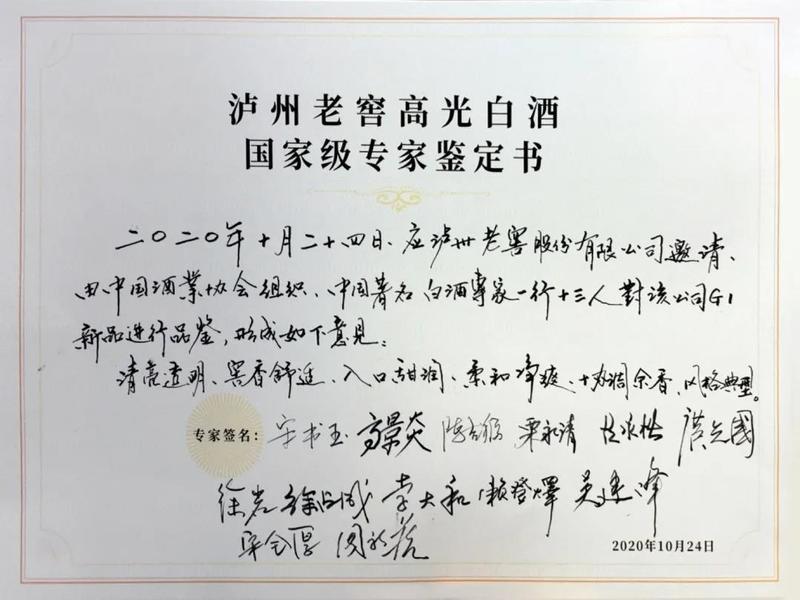 泸州老窖高光白酒
国家级专家鉴定书
二〇二〇年十月二十四日、应泸州老窖股份有限公司邀请、
由中国酒业协会组织、中国著名白酒专家一行十三人對该公司G1
新品进行品鉴，形成如下意见：
清亮透明、窖香舒适、入口甜润、柔和净爽、协调余香、风格典型。
专家签名： 宋书玉 高景炎 栗永清
徐岩 李大和 赖登燡 吴建峰
2020年10月24日